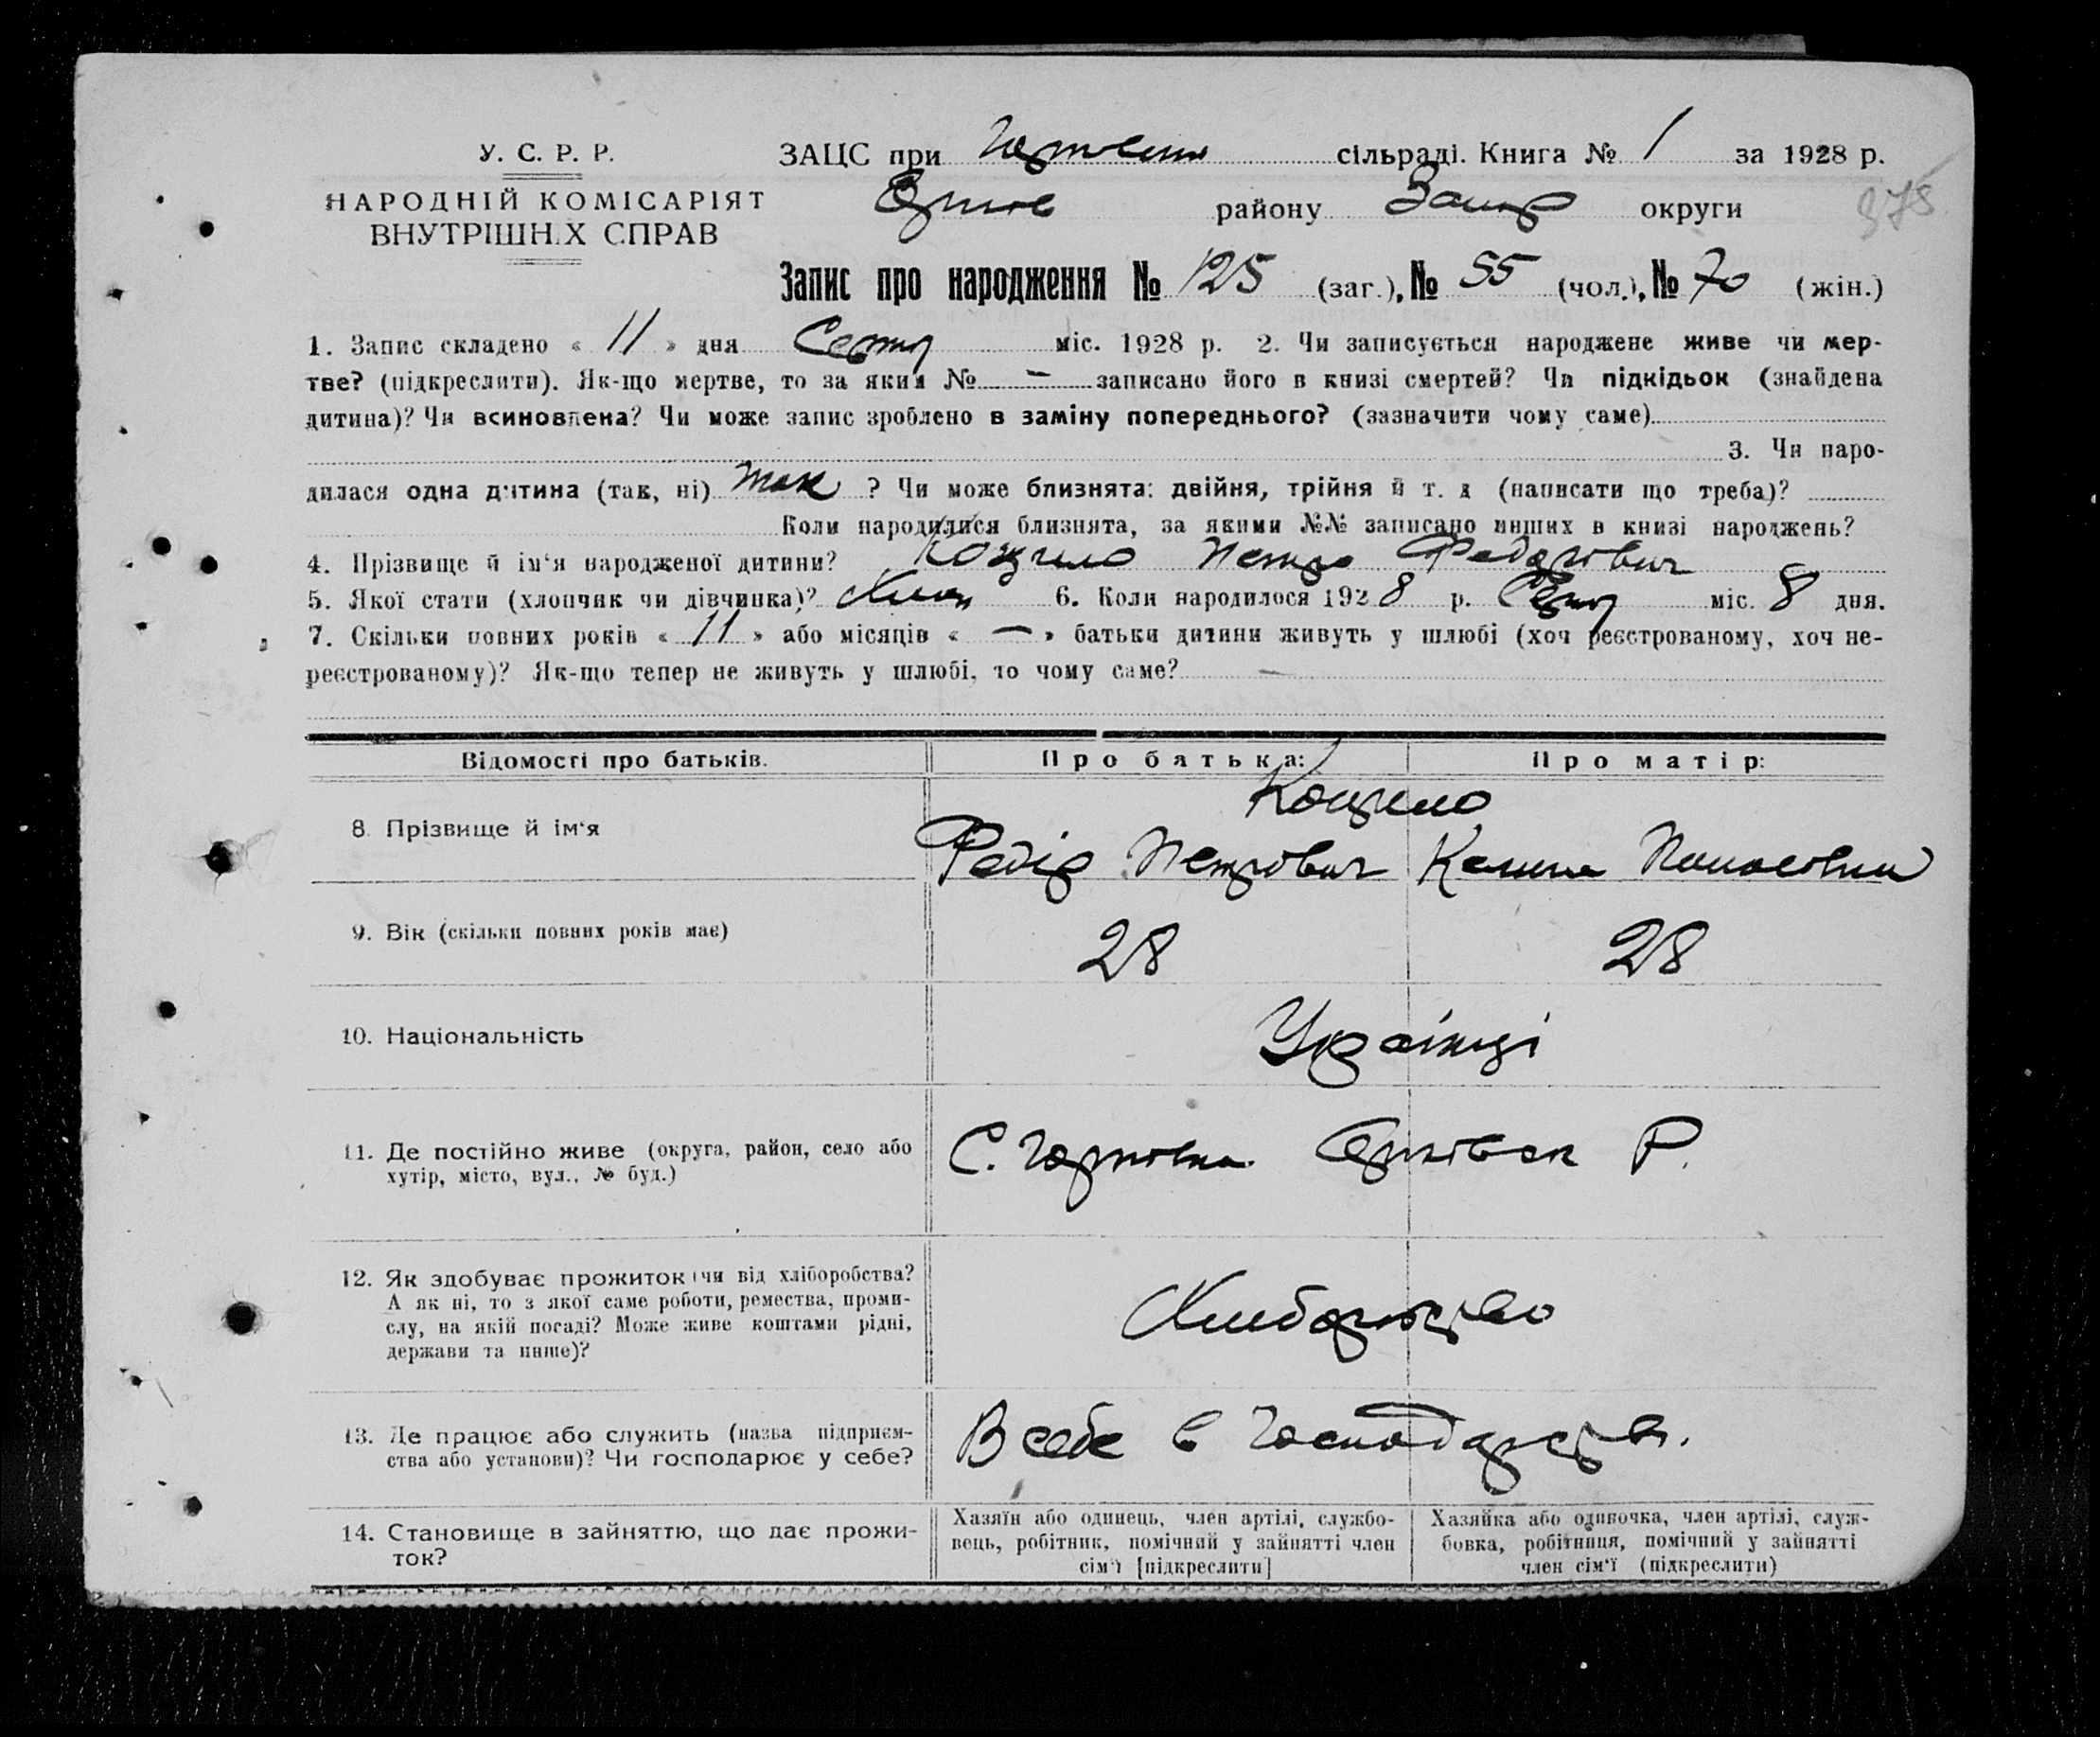 У. С. Р. Р.
НАРОДНІЙ КОМІСАРІЯТ
ВНУТРІШНІХ СПРАВ
ЗАЦС при сільраді. Книга № 1 за 1928 р.
району Запор округи
378
Запис про народження № 125 (заг.), № 55 (чол.), № 70 (жін.)
1. Запис складено « 11 » дня міс. 1928 р. 2. Чи записується народжене живе чи мер-
тве? (підкреслити). Як-що мертве, то за яким № — записано його в книзі смертей? Чи підкідьок (знайдена
дитина)? Чи всиновлена? Чи може запис зроблено в заміну попереднього? (зазначити чому саме)
3. Чи наро-
дилася одна дитина (так, ні) так ? Чи може близнята: двійня, трійня й т. д (написати що треба)?
Коли народилися близнята, за якими №№ записано инших в книзі народжень?
4. Прізвище й ім‘я народженої дитини? Петро Федорович
5. Якої стати (хлопчик чи дівчинка)? 6. Коли народилося 1928 р. міс. 8 дня.
7. Скільки повних років « 11 » або місяців « — » батьки дитини живуть у шлюбі (хоч реєстрованому, хоч не-
реєстрованому)? Як-що тепер не живуть у шлюбі, то чому саме? —
Відомості про батьків. Про батька: Про матір:
8. Прізвище й ім‘я
Федір Петрович
9. Вік (скільки повних років має) 28 28
10. Національність Українці
11. Де постійно живе (округа, район, село або
хутір, місто, вул., № буд.)
С. Р.
12. Як здобуває прожиток (чи від хліборобства?
А як ні, то з якої саме роботи, ремества, проми-
слу, на якій посаді? Може живе коштами рідні,
держави та инше)?
13. Де працює або служить (назва підприєм-
ства або установи)? Чи господарює у себе?
В себе в господарстві.
14. Становище в зайняттю, що дає прожи-
ток?
Хазяїн або одинець, член артілі, службо-
вець, робітник, помічний у зайнятті член
сім‘ї [підкреслити]
Хазяйка або одиночка, член артілі, служ-
бовка, робітниця, помічний у зайнятті
член сім‘ї (підкреслити)